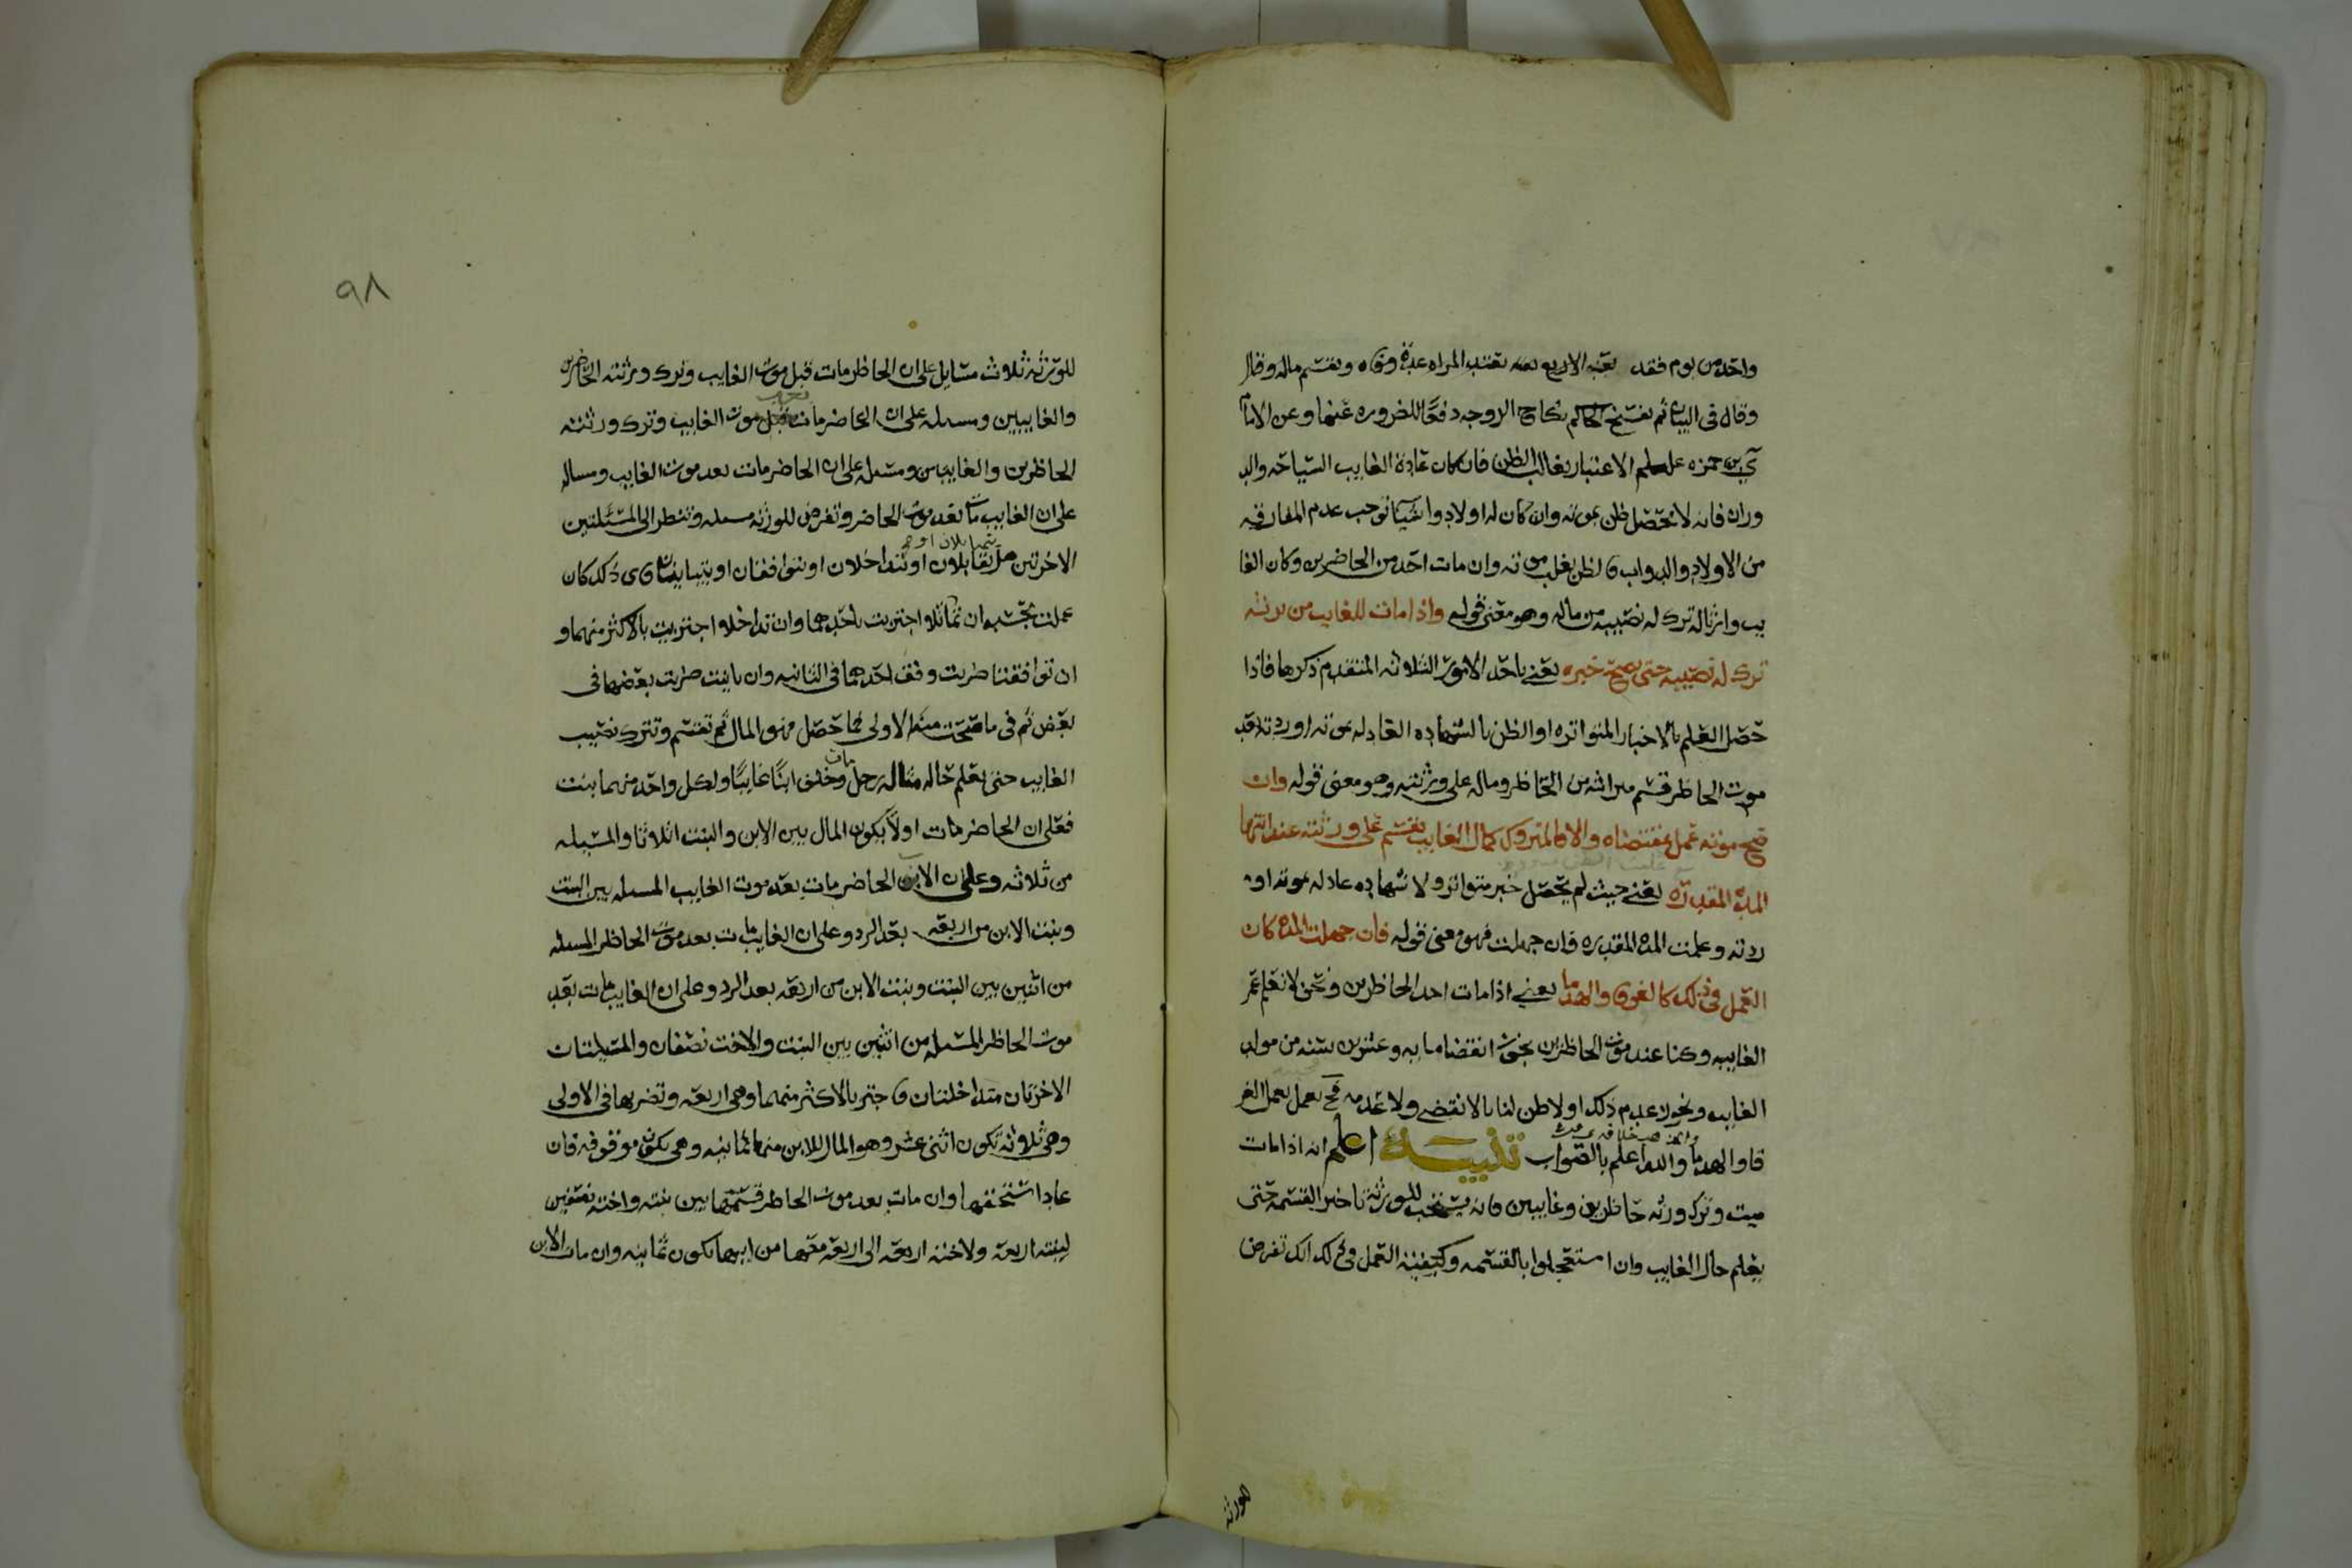 واحد من يوم فقد بعد الاربع سنه تعتد المراه عدة وفاه ويقسم ماله وقال
وقال في البيان ثم يفسخ الحاكم نكاح الزوجه دفعًا للضروره عنها وعن الامام
يحيى بن حمزه علسلم الاعتبار بغالب الظن فان كان عادة الغايب السياحه والد
وران فانه لا يحصل ظن بموته وان كان له اولاد واشيآ توجب عدم المفارقه
من الاولاد والدواب فالظن يغلب موته وان مات احد من الحاضرين وكان الغا
يب وارثا له ترك له نصيبه من ماله وهو معنى قوله واذا مات للغايب من يرثه
ترك له نصيبه حتى يصح خبره يعني باحد الامور الثلاثه المتقدم ذكرها فاذا
حصل العلم بالاخبار المتواتره او الظن بالشهاده العادله بموته او ردته بعد
موت الحاظر قسم ميراثه من الحاظر وماله على ورثته وهو معنى قوله وان
صح موته عمل بمقتضاه والا فالمتروك كمال الغايب يقسم على ورثته عند انتها
المدة المقدره يعني حيث لم يحصل خبر متواتر ولا شهاده عادله بموته او
ردته وعلمت المده المقدره فان جهلت فهو معنى قوله فان جهلت المده كان
العمل في ذلك كالغرقى والهدما يعني اذا مات احد الحاظرين ونحن لا نعلم عمر
الغايب وكنا عند موت الحاظرين نجوز انقضا مايه وعشرين سنه من مولد
الغايب ونجوز عدم ذلك اولا ظن لنا بالانقضى ولا عدمه فح يعمل بعمل الغر
قا والهدما والله اعلم بالصواب تنبيـــه اعلم انه اذا مات
ميت وترك ورثه حاظرين وغايبين فانه يستحب للورثة تاخير القسمه حتى
يعلم حال الغايب وان استعجلوا بالقسمه وكيفية العمل في ذلك انك تفرض
للورثه
٩٨
للورثة ثلاث مسايل على ان الحاظر مات قبل موت الغايب وترك ورثته الحاضرين
والغايبين ومسله على ان الحاضر مات قبل موت الغايب وترك ورثته
الحاظرين والغايبين ومسله على ان الحاضر مات بعد موت الغايب ومساله
على ان الغايب مات بعد موت الحاضر وتفرض للورثه مسله وتنظر الى المسئلتين
الاخرتين هل تقابلان او تتداخلان او تتوافقان او يتباينان فاي ذلك كان
عملت بحسبه ان تماثلا اجتزيت باحدهما وان تداخلا اجتزيت بالاكثر منهما و
ان توافقتا ضربت وفق احدهما في الثانيه وان باينت ضربت بعضها في
بعض ثم في ما صحت منه الاولى فما حصل فهو المال ثم تقسم وتترك نصيب
الغايب حتى يعلم حاله مثاله رجل مات وخلف ابنًا غايبًا ولكل واحد منهما بنت
فعلى ان الحاضر مات اولًا يكون المال بين الابن والبنت اثلاثا والمسله
من ثلاثه وعلى ان الابن الحاضر مات بعد موت الغايب المسله بين البنت
وبنت الابن من اربعه بعد الرد وعلى ان الغايب مات بعد موت الحاظر المسله
من اثنين بين البنت وبنت الابن من اربعه بعد الرد وعلى ان الغايب مات بعد
موت الحاظر المسله من اثنين بين البنت والاخت نصفان والمسيلتان
الاخرتان متداخلتان فاجتز بالاكثر منهما وهي اربعه وتضربها في الاولى
وهي ثلاثه تكون اثنى عشر وهو المال للابن منها ثمانيه وهي تكون موقوفه فان
عاد استحقها وان مات بعد موت الحاظر قسمتها بين بنته واخته نصفين
لبنته اربعه ولاخته اربعه الى اربعه معها من ابيها تكون ثمانيه وان مات الابن